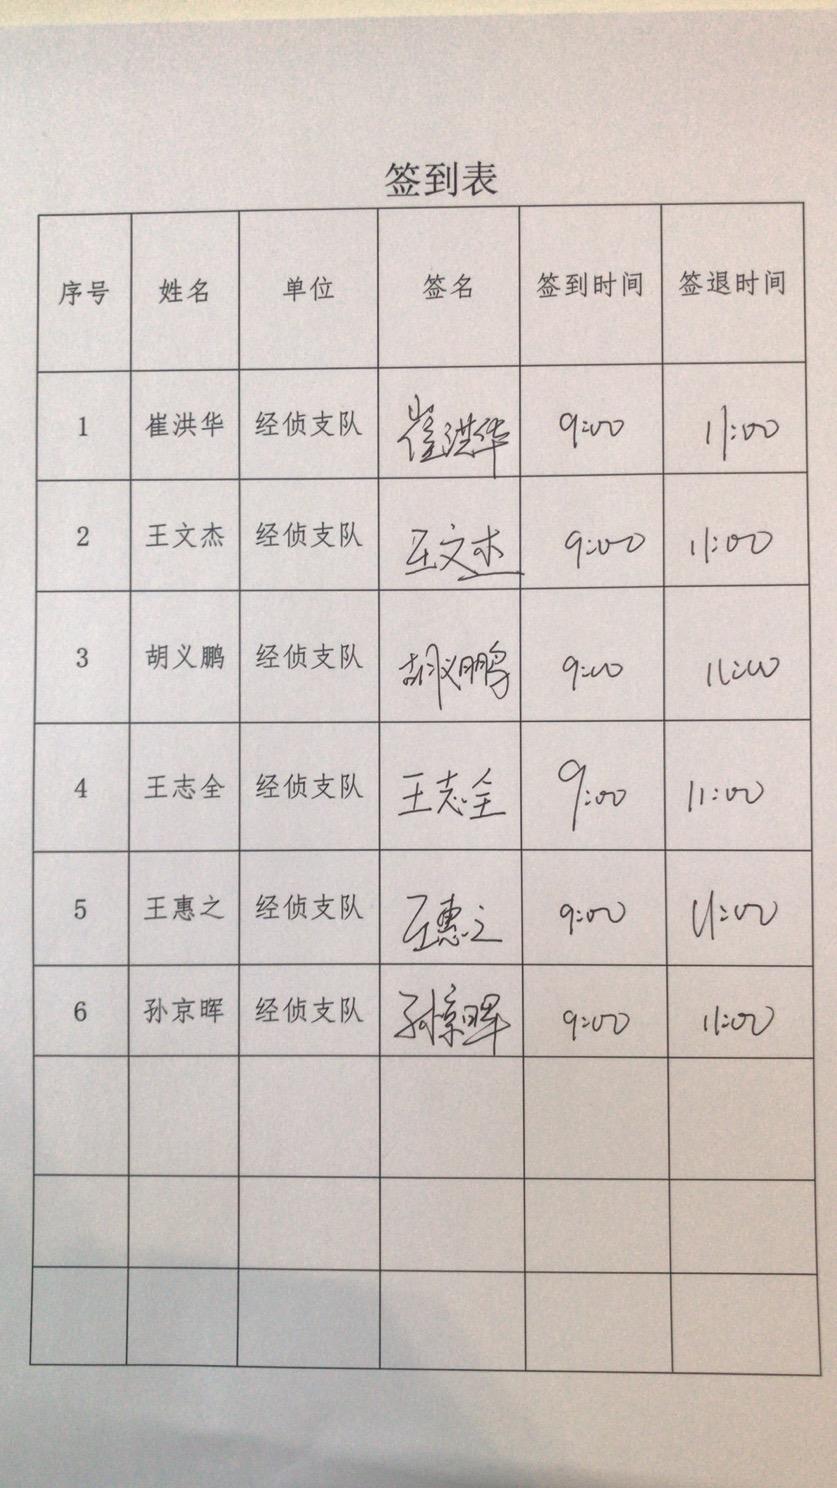 签到表
序号 姓名 单位 签名 签到时间 签退时间
1 崔洪华 经侦支队 崔洪华 9:00 11:00
2 王文杰 经侦支队 王文杰 9:00 11:00
3 胡义鹏 经侦支队 胡义鹏 9:00 11:00
4 王志全 经侦支队 王志全 9:00 11:00
5 王惠之 经侦支队 王惠之 9:00 11:00
6 孙京晖 经侦支队 孙京晖 9:00 11:00